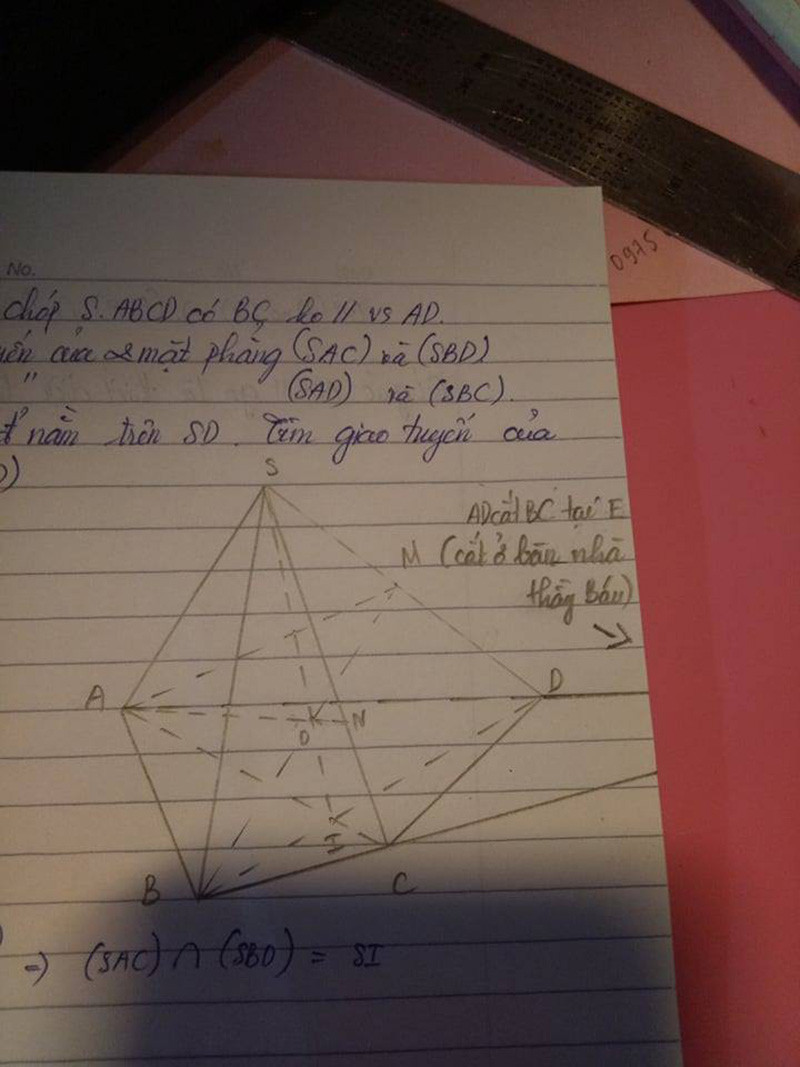 No.
0975
chóp S.ABCD có BC ko // vs AD.
của 2 mặt phẳng (SAC) và (SBD)
" (SAD) và (SBC).
nằm trên SD. Tìm giao tuyến của
S
AD cắt BC tại E
M (cắt ở bàn nhà
thằng Báu)
A
D
K N
O
I
B
C
=) (SAC) ∩ (SBD) = SI